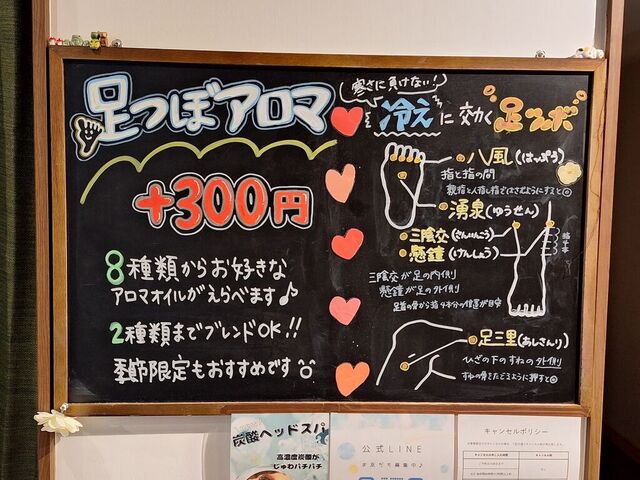 足つぼアロマ
+300円
8種類からお好きな
アロマオイルがえらべます♪
2種類までブレンドOK!!
季節限定もおすすめです
寒さに負けない!
冷えに効く足ツボ
八風(はっぷう)
指と指の間
親指と人指し指ではさむようにすると◎
湧泉(ゆうせん)
三陰交(さんいんこう)
懸鐘(けんしょう)
指4本
三陰交が足の内側
懸鐘が足の外側
足首の骨から指4本分の位置が目安
足三里(あしさんり)
ひざの下のすねの外側
すねの骨をたどるように押すと◎
炭酸ヘッドスパ
高濃度炭酸が
じゅわパチパチ
公式LINE
お友だち募集中♪
キャンセルポリシー